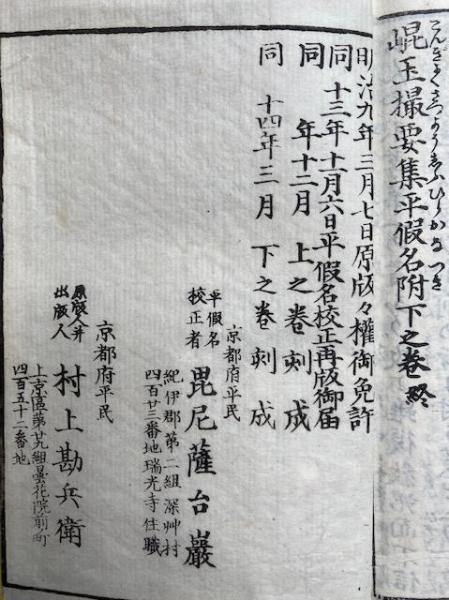 崐玉撮要集平假名附下之卷終
こんぎよくさつようしふひらかなつき
明治九年三月七日原版々權御免許
同十三年十一月六日平假名校正再版御届
同年十二月上之卷刻成
同十四年三月下之卷刻成
京都府平民
平假名校正者 毘尼薩台巖
紀伊郡第二組深艸村
四百廿三番地瑞光寺住職
京都府平民
原版人并出版人 村上勘兵衛
上京區第廿九組曇花院前町
四百五十二番地